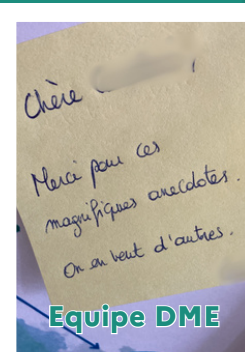 Chère
Merci pour ces
magnifiques anecdotes.
On en veut d'autres.
Equipe DME